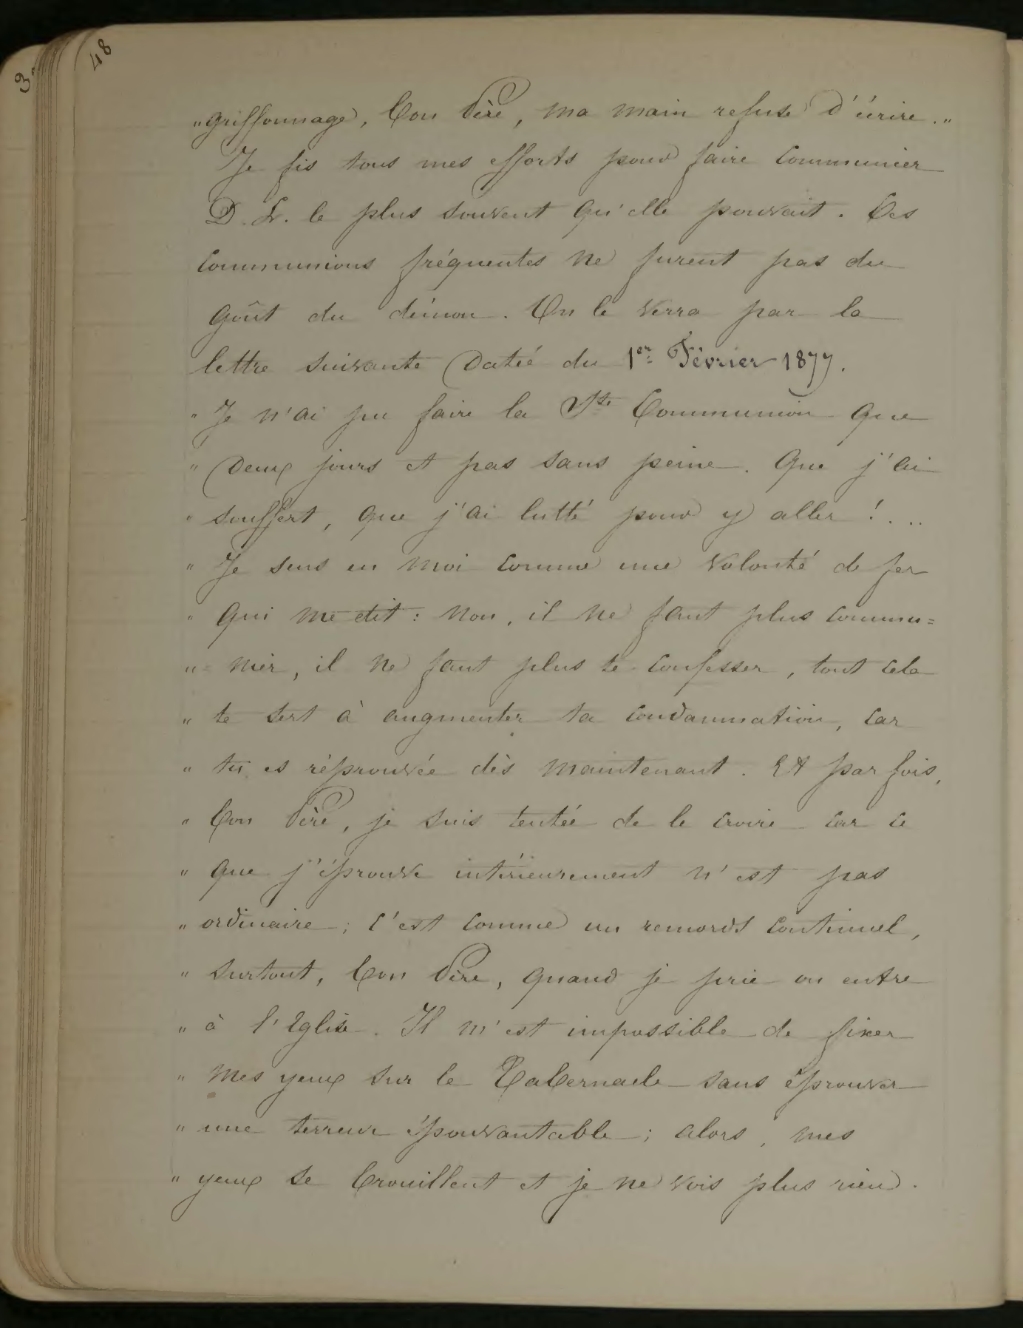 48
3
„griffonnage, bon Père, ma main refuse d'écrire.„
Je fis tous mes efforts pour faire communier
D. L. le plus souvent qu'elle pouvait. Ces
communions fréquentes ne furent pas du
goût du démon. On le verra par la
lettre suivante datée du 1er Février 1877.
„ Je n'ai pu faire la Ste Communion que
„ deux jours et pas sans peine. Que j'ai
„ souffert, que j'ai lutté pour y aller !...
„ Je sens en moi comme une volonté de fer
„ qui me dit : non, il ne faut plus commu=
„ =nier, il ne faut plus te confesser, tout cela
„ te sert à augmenter ta condamnation, car
„ tu es réprouvée dès maintenant. Et par fois,
„ bon Père, je suis tentée de le croire car ce
„ que j'éprouve intérieurement n'est pas
„ ordinaire ; c'est comme un remords continuel,
„ surtout, bon Père, quand je prie ou entre
„ à l'Eglise. Il m'est impossible de fixer
„ mes yeux sur le Tabernacle sans éprouver
„ une terreur épouvantable ; alors, mes
„ yeux se brouillent et je ne vois plus rien.